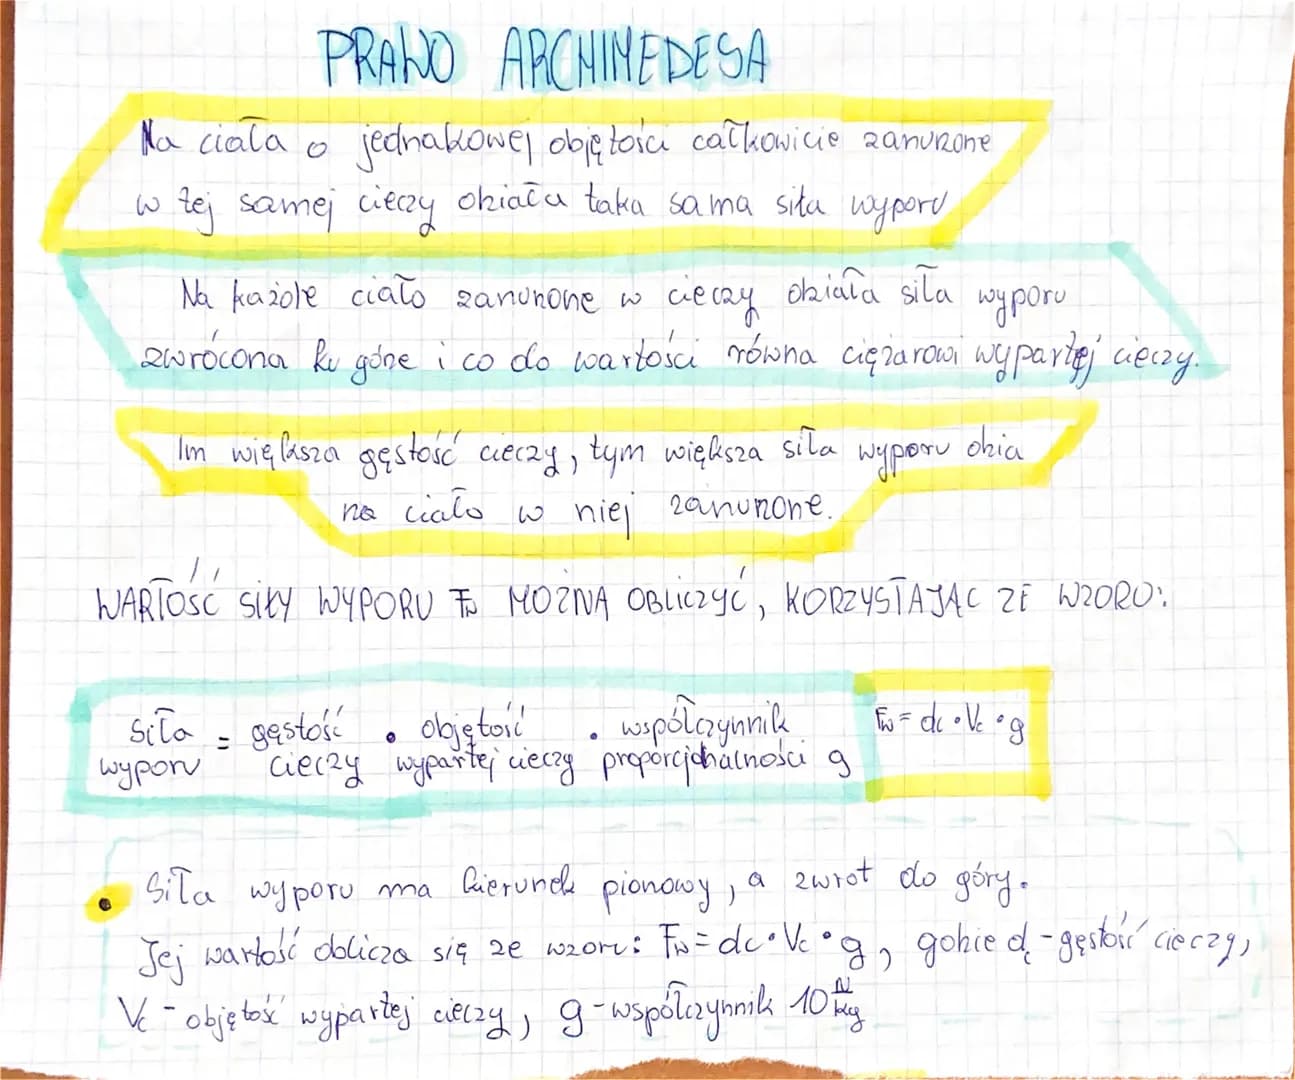 PRAWO ARCHIMEDESA
Na ciała o jednakowej objętości całkowicie zanurzone
w tej samej cieczy działa taka sama siła wyporu
Na każde ciało zanurzone w cieczy działa siła wyporu
zwrócona ku górze i co do wartości równa ciężarowi wypartej cieczy.
Im większa gęstość cieczy, tym większa siła wyporu dzia
na ciało w niej zanurzone.
WARTOŚĆ SIŁY WYPORU Fw MOŻNA OBLICZYĆ, KORZYSTAJĄC ZE WZORU:
siła = gęstość • objętość • współczynnik Fw = dc • Vc • g
wyporu cieczy wypartej cieczy proporcjonalności g
• Siła wyporu ma kierunek pionowy, a zwrot do góry.
Jej wartość oblicza się ze wzoru: Fw = dc • Vc • g, gdzie dc - gęstość cieczy,
Vc - objętość wypartej cieczy, g - współczynnik 10 N/kg